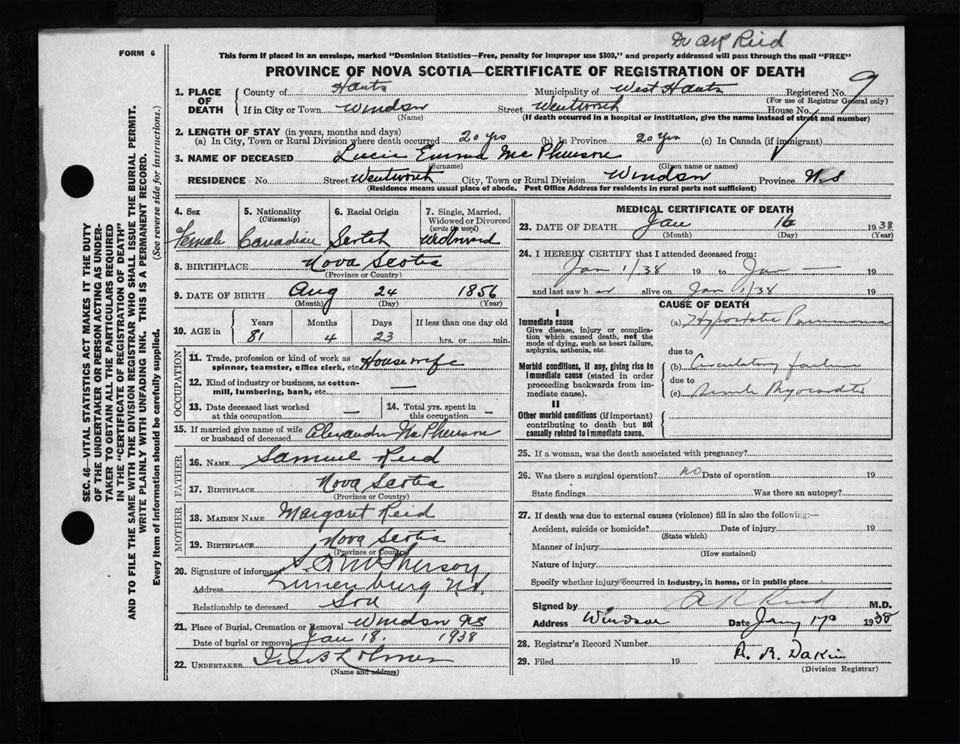 Dr AR Reid
FORM 6
This form if placed in an envelope, marked "Dominion Statistics—Free, penalty for improper use $300," and properly addressed will pass through the mail "FREE"
PROVINCE OF NOVA SCOTIA—CERTIFICATE OF REGISTRATION OF DEATH
1. PLACE OF DEATH
County of Hants Municipality of West Hants Registered No. 9
(For use of Registrar General only)
If in City or Town Windsor Street Wentworth House No.
(Name) (If death occurred in a hospital or institution, give the name instead of street and number)
2. LENGTH OF STAY (in years, months and days)
(a) In City, Town or Rural Division where death occurred 20 yrs (b) In Province 20 yrs (c) In Canada (if immigrant)
3. NAME OF DECEASED Lucie McPherson
(Surname) (Given name or names)
RESIDENCE - No. Street Wentworth City, Town or Rural Division Windsor Province N.S
(Residence means usual place of abode. Post Office Address for residents in rural parts not sufficient)
4. Sex Female
5. Nationality (Citizenship) Canadian
6. Racial Origin Scotch
7. Single, Married, Widowed or Divorced (write the word) Widowed
8. BIRTHPLACE Nova Scotia
(Province or Country)
9. DATE OF BIRTH Aug 24 1856
(Month) (Day) (Year)
10. AGE in Years Months Days If less than one day old
81 4 23 hrs. or min.
OCCUPATION
11. Trade, profession or kind of work as spinner, teamster, office clerk, etc. Housewife
12. Kind of industry or business, as cotton-mill, lumbering, bank, etc. —
13. Date deceased last worked at this occupation —
14. Total yrs. spent in this occupation —
15. If married give name of wife or husband of deceased Alexander McPherson
FATHER
16. NAME Samuel Reid
17. BIRTHPLACE Nova Scotia
(Province or Country)
MOTHER
18. MAIDEN NAME Margaret Reid
19. BIRTHPLACE Nova Scotia
(Province or Country)
20. Signature of informant McPherson
Address Lunenburg N.S.
Relationship to deceased Son
21. Place of Burial, Cremation or Removal Windsor NS
Date of burial or removal Jan 18. 1938
22. UNDERTAKER
(Name and address)
MEDICAL CERTIFICATE OF DEATH
23. DATE OF DEATH Jan 16 1938
(Month) (Day) (Year)
24. I HEREBY CERTIFY that I attended deceased from:
Jan 1/38 19 to Jan — 19
and last saw h er alive on Jan 1/38 19
CAUSE OF DEATH
I
Immediate cause
Give disease, injury or complication which caused death, not the mode of dying, such as heart failure, asphyxia, asthenia, etc.
(a) Hypostatic Pneumonia
due to
Morbid conditions, if any, giving rise to immediate cause (stated in order proceeding backwards from immediate cause).
(b) Circulatory failure
due to
(c) Senile Myocarditis
II
Other morbid conditions (if important) contributing to death but not causally related to immediate cause.
25. If a woman, was the death associated with pregnancy?
26. Was there a surgical operation? no Date of operation 19
State findings Was there an autopsy?
27. If death was due to external causes (violence) fill in also the following:—
Accident, suicide or homicide? Date of injury 19
(State which)
Manner of injury
(How sustained)
Nature of injury
Specify whether injury occurred in industry, in home, or in public place
Signed by AR Reid M.D.
Address Windsor Date Jany 17th 1938
28. Registrar's Record Number
29. Filed 19 A. R. Dakin
(Division Registrar)
SEC. 46—VITAL STATISTICS ACT MAKES IT THE DUTY
OF THE UNDERTAKER OR PERSON ACTING AS UNDER-
TAKER TO OBTAIN ALL THE PARTICULARS REQUIRED
IN THE "CERTIFICATE OF REGISTRATION OF DEATH"
AND TO FILE THE SAME WITH THE DIVISION REGISTRAR WHO SHALL ISSUE THE BURIAL PERMIT.
WRITE PLAINLY WITH UNFADING INK. THIS IS A PERMANENT RECORD.
Every item of information should be carefully supplied. (See reverse side for instructions.)